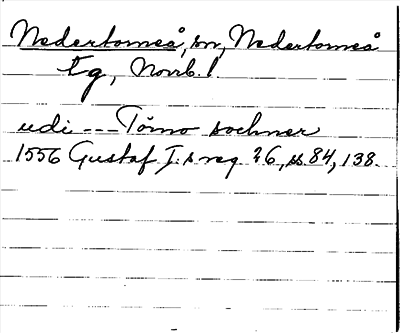 Nedertorneå, sn, Nedertorneå
tg, Norrb. l.
udi --- Tömo sochner
1556 Gustaf I:s reg. 26, ss 84, 138.